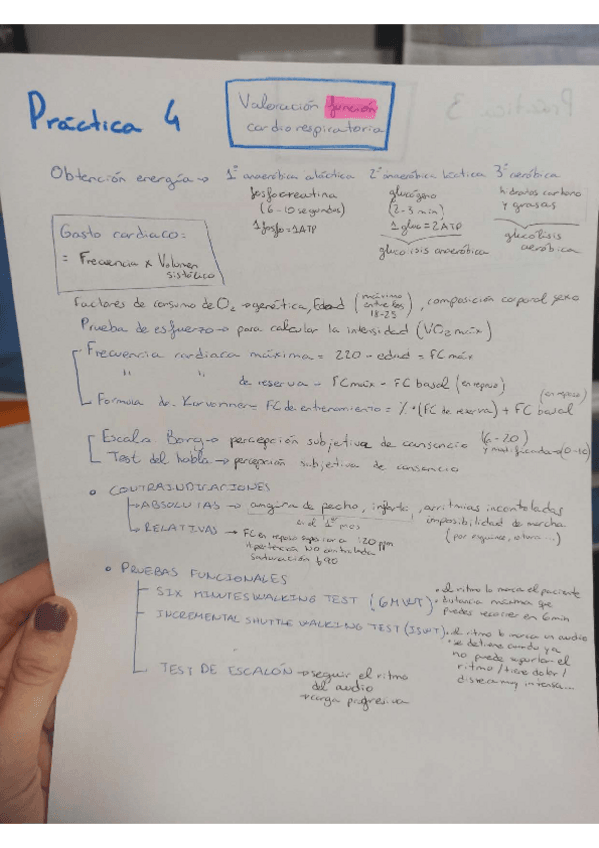 Práctica 4
Valoración función
cardiorespiratoria
Obtención energía → 1º anaeróbica aláctica 2º anaeróbica láctica 3º aeróbica
fosfocreatina
(6-10 segundos)
1 fosfo = 1 ATP
glucógeno
(2-3 min)
1 gluc = 2 ATP
glucolisis anaeróbica
hidratos carbono
y grasas
glucolisis
aeróbica
Gasto cardiaco:
= Frecuencia x Volumen
sistólico
Factores de consumo de O2 → genética, Edad (máximo entre los 18-25), composición corporal, sexo
Prueba de esfuerzo → para calcular la intensidad (VO2 máx)
Frecuencia cardiaca máxima = 220 - edad = FC máx
" " de reserva - FC máx - FC basal (en reposo)
Formula de Karvonnen = FC de entrenamiento = % • (FC de reserva) + FC basal (en reposo)
Escala Borg → percepción subjetiva de cansancio (6-20)
y modificada → (0-10)
Test del habla → percepción subjetiva de cansancio
CONTRAINDICACIONES
ABSOLUTAS → angina de pecho, infarto, arritmias incontroladas
en el 1er mes
imposibilidad de marcha
(por esguince, ...)
RELATIVAS → FC en reposo superior a 120 ppm
Hipertensión NO controlada
Saturación 90
PRUEBAS FUNCIONALES
SIX MINUTES WALKING TEST (6MWT)
• el ritmo lo marca el paciente
• distancia máxima que
puedes recorrer en 6 min
INCREMENTAL SHUTTLE WALKING TEST (ISWT)
• el ritmo lo marca un audio
• se detiene cuando ya
no puede soportar el
ritmo / tiene dolor /
disnea muy intensa...
TEST DE ESCALÓN → seguir el ritmo
del audio
→ carga progresiva